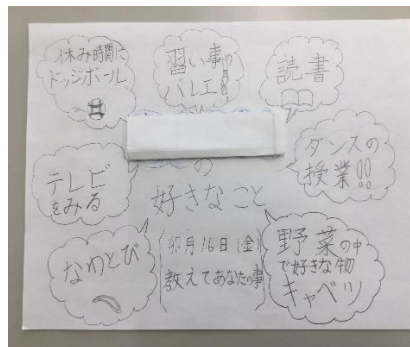 休み時間に
ドッジボール
習い事の
バレエ
読書
ダンスの
授業!!
テレビ
をみる
の
好きなこと
なわとび
月16日(金)
教えてあなたの事
野菜の中
で好きな物
キャベツ